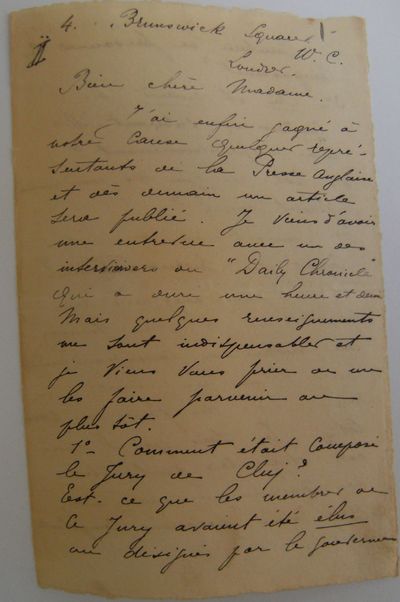 4. Brunswick Square
II
W. C.
Londres.
Bien chère Madame.
J'ai enfin gagné à
votre cause quelques repré-
sentants de la Presse Anglaise
et dès demain un article
sera publié. Je viens d'avoir
une entrevue avec un des
interviewers du "Daily Chronicle"
qui a duré une heure et demi
Mais quelques renseignements
me sont indispensables et
je viens vous prier de me
les faire parvenir au
plus tôt.
1º- Comment était composé
le Jury de Cluj?
Est-ce que les membres de
ce Jury avaient été élus
ou désignés par le gouvernem